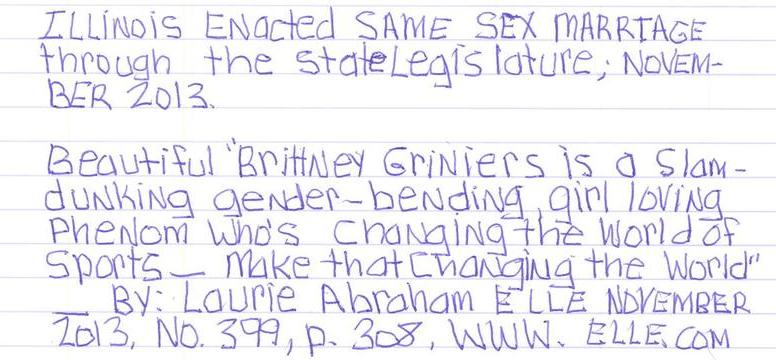 ILLiNOiS ENacted SAME SEX MARRIAGE
through the StateLegislature; NOVEM-
BER 2013.
Beautiful "Brittney Griniers is a Slam-
dunking gender-bending, girl loving
Phenom who's changing the World of
Sports — Make that changing the World"
— By: Laurie Abraham ELLE NOVEMBER
2013, NO. 399, p. 308, WWW. ELLE.COM